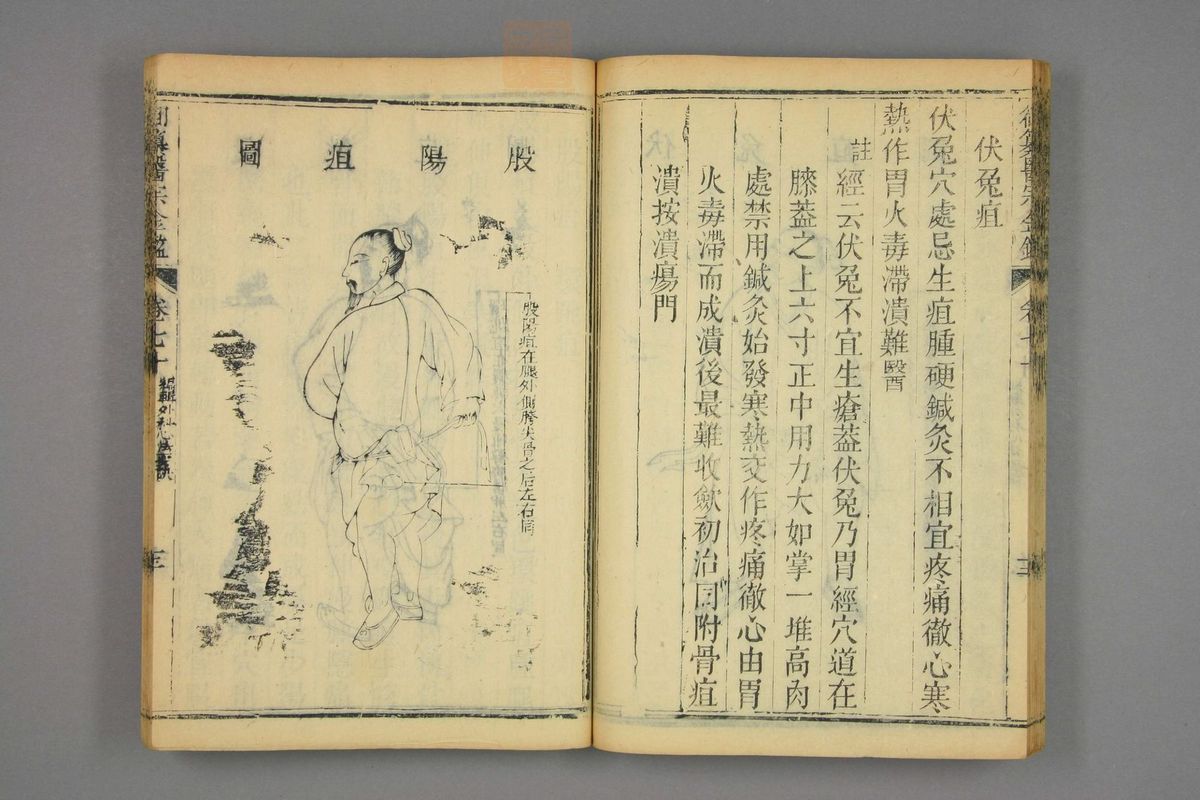 伏兔疽
伏兔穴處忌生疽腫硬鍼灸不相宜疼痛徹心寒
熱作胃火毒滯潰難醫
註
經云伏兔不宜生瘡蓋伏兔乃胃經穴道在
膝蓋之上六寸正中用力大如掌一堆高肉
處禁用鍼灸始發寒熱交作疼痛徹心由胃
火毒滯而成潰後最難收斂初治同附骨疽
潰按潰瘍門
股陽疽圖
股陽疽在腿外側胯尖骨之后左右同
醫宗金鑑
卷七十
編輯外科心法要訣
三